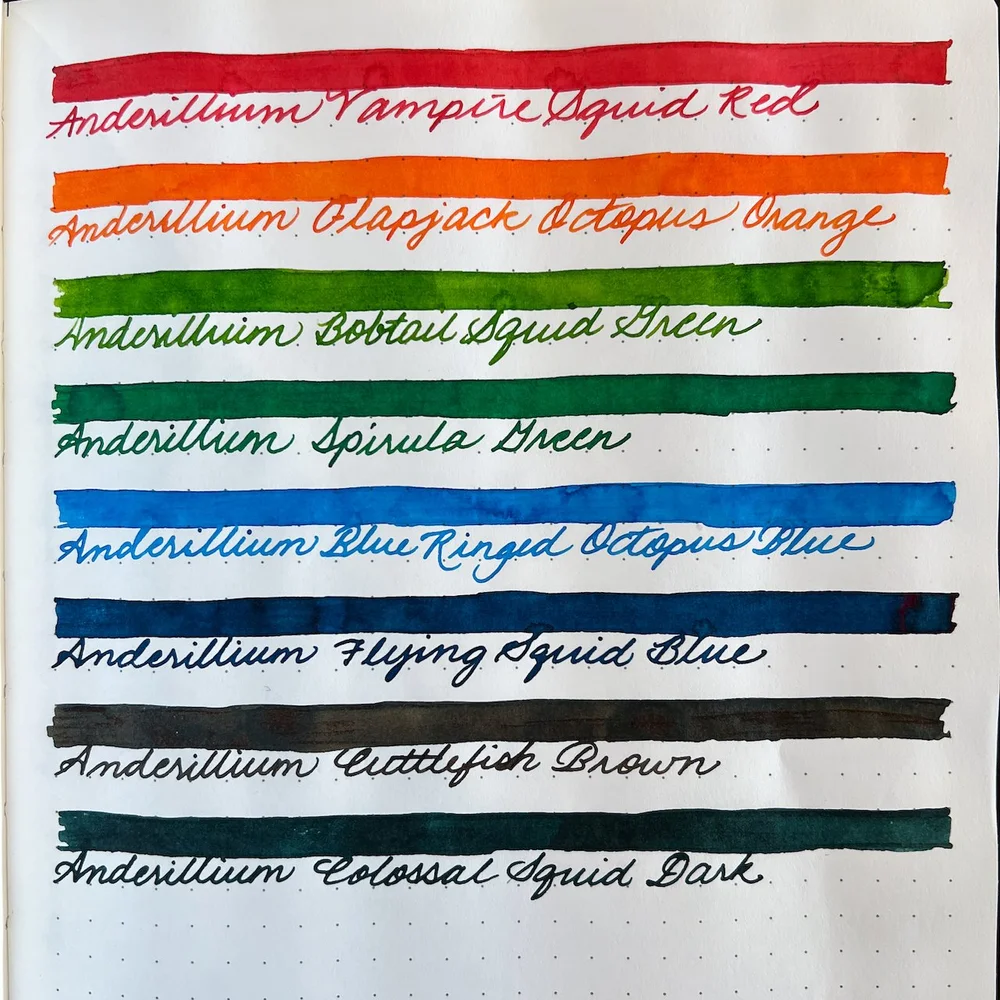 Anderillium Vampire Squid Red
Anderillium Flapjack Octopus Orange
Anderillium Bobtail Squid Green
Anderillium Spirula Green
Anderillium Blue Ringed Octopus Blue
Anderillium Flying Squid Blue
Anderillium Cuttlefish Brown
Anderillium Colossal Squid Dark